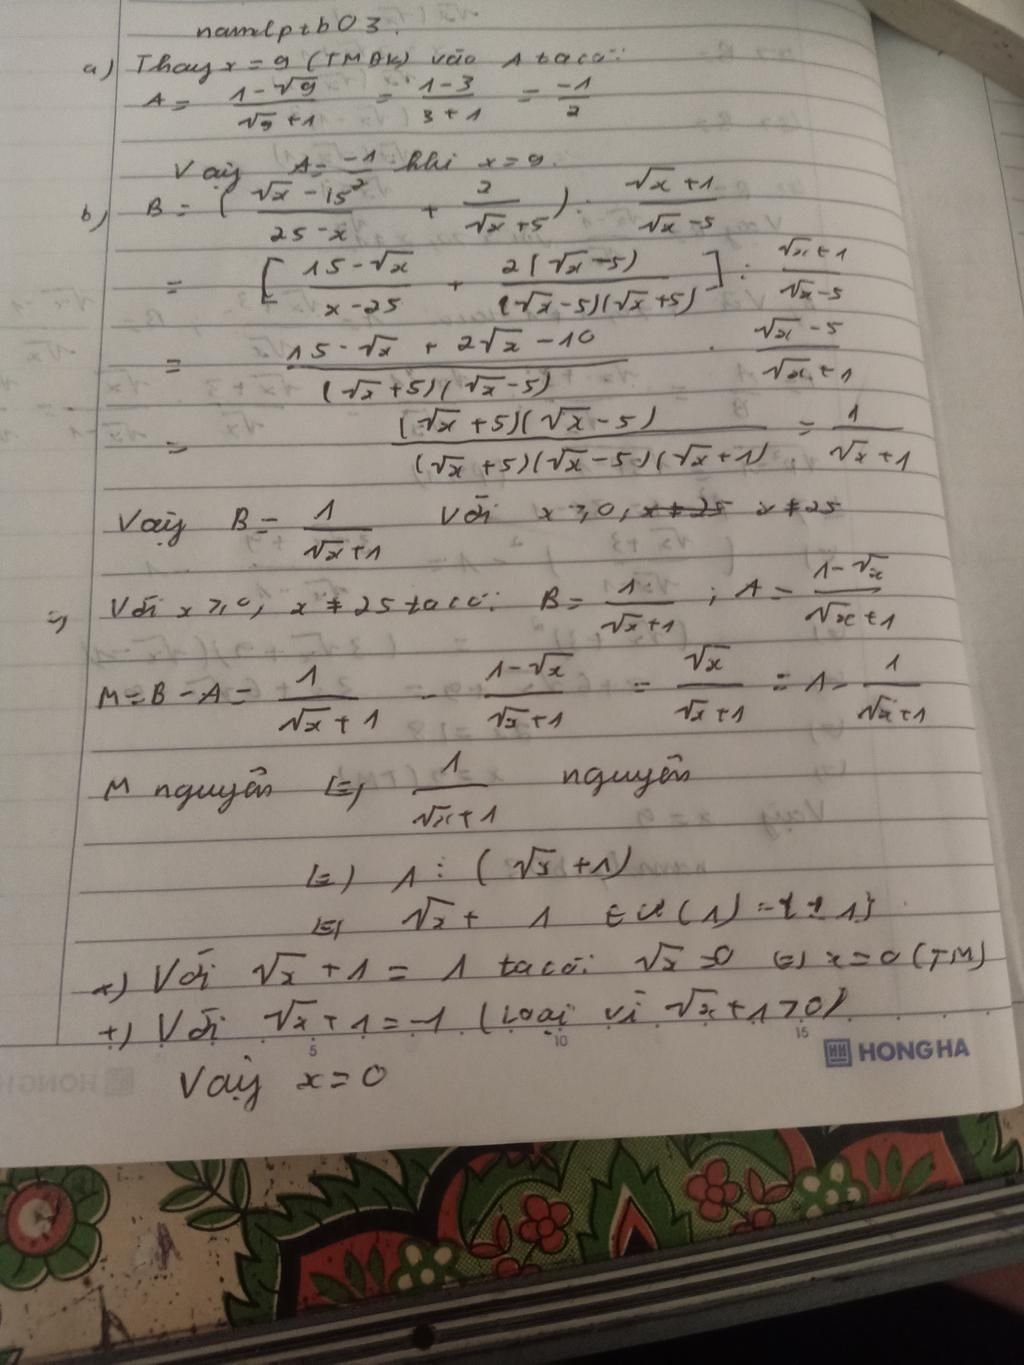 namlptb03.
a) Thay x = 9 (TMĐK) vào A ta có:
A = (1 - √9)/(√9 + 1) = (1 - 3)/(3 + 1) = -1/2
Vậy A = -1/2 khi x = 9.
b) B = ( (√x - 15)/(25 - x) + 2/(√x + 5) ) : (√x + 1)/(√x - 5)
= [ (15 - √x)/(x - 25) + 2(√x - 5)/((√x - 5)(√x + 5)) ] : (√x + 1)/(√x - 5)
= (15 - √x + 2√x - 10)/((√x + 5)(√x - 5)) . (√x - 5)/(√x + 1)
= (√x + 5)(√x - 5)/((√x + 5)(√x - 5)(√x + 1)) = 1/(√x + 1)
Vậy B = 1/(√x + 1) Với x ⩾ 0, x ≠ 25 x ≠ 25
Với x ⩾ 0, x ≠ 25 ta có: B = 1/(√x + 1) ; A = (1 - √x)/(√x + 1)
M = B - A = 1/(√x + 1) - (1 - √x)/(√x + 1) = √x/(√x + 1) = 1 - 1/(√x + 1)
M nguyên (=) 1/(√x + 1) nguyên
(=) 1 ⋮ (√x + 1)
(=) √x + 1 ∈ Ư(1) = {± 1}
+) Với √x + 1 = 1 ta có: √x = 0 (=) x = 0 (TM)
+) Với √x + 1 = -1 (Loại vì √x + 1 > 0)
5 10 15
HONG HA
Vậy x = 0